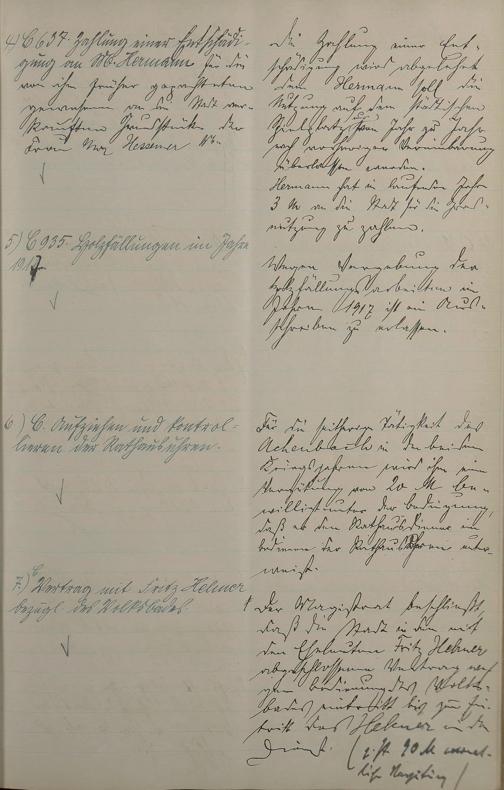 4) C 637. Zahlung einer Entschädi-
gung an Wb. Hermann für die
von ihm früher gepachteten
gewesenen an die Stadt ver-
kauften Grundstücke der
Frau Hessemer Ww.
Die Zahlung einer Ent-
schädigung wird abgelehnt
dem Hermann soll die
Nutzung auf dem städtischen
Spielplatz von Jahr zu Jahr
nach vorheriger Vereinbarung
überlassen werden.
Hermann hat im laufenden Jahr
3 M an die Stadt für die Gras-
nutzung zu zahlen.
5) C 935. Holzfällungen im Jahre
1917
Wegen Vergebung der
Holzfällungsarbeiten im
Jahre 1917 ist ein Aus-
schreiben zu erlassen.
6) C. Aufziehen und Kontrol-
lieren der Rathausuhren.
Für die seitherige Tätigkeit des
Achenbach in den beiden
Kriegsjahren wird ihm eine
Vergütung von 20 M be-
willigt unter der Bedingung,
daß er den Rathausdiener im
Bedienen der Rathausuhren unter-
weist.
7.) C Vertrag mit Fritz Helmer
bezügl. des Volksbades
Der Magistrat beschließt,
daß die Stadt in den mit
den Eheleuten Fritz Helmer
abgeschlossenen Vertrag
wegen Bedienung des Volks-
bades eintritt bis zum Ein-
tritt des Helmer in den
Dienst. (z. Zt. 90 M monat-
liche Vergütung)